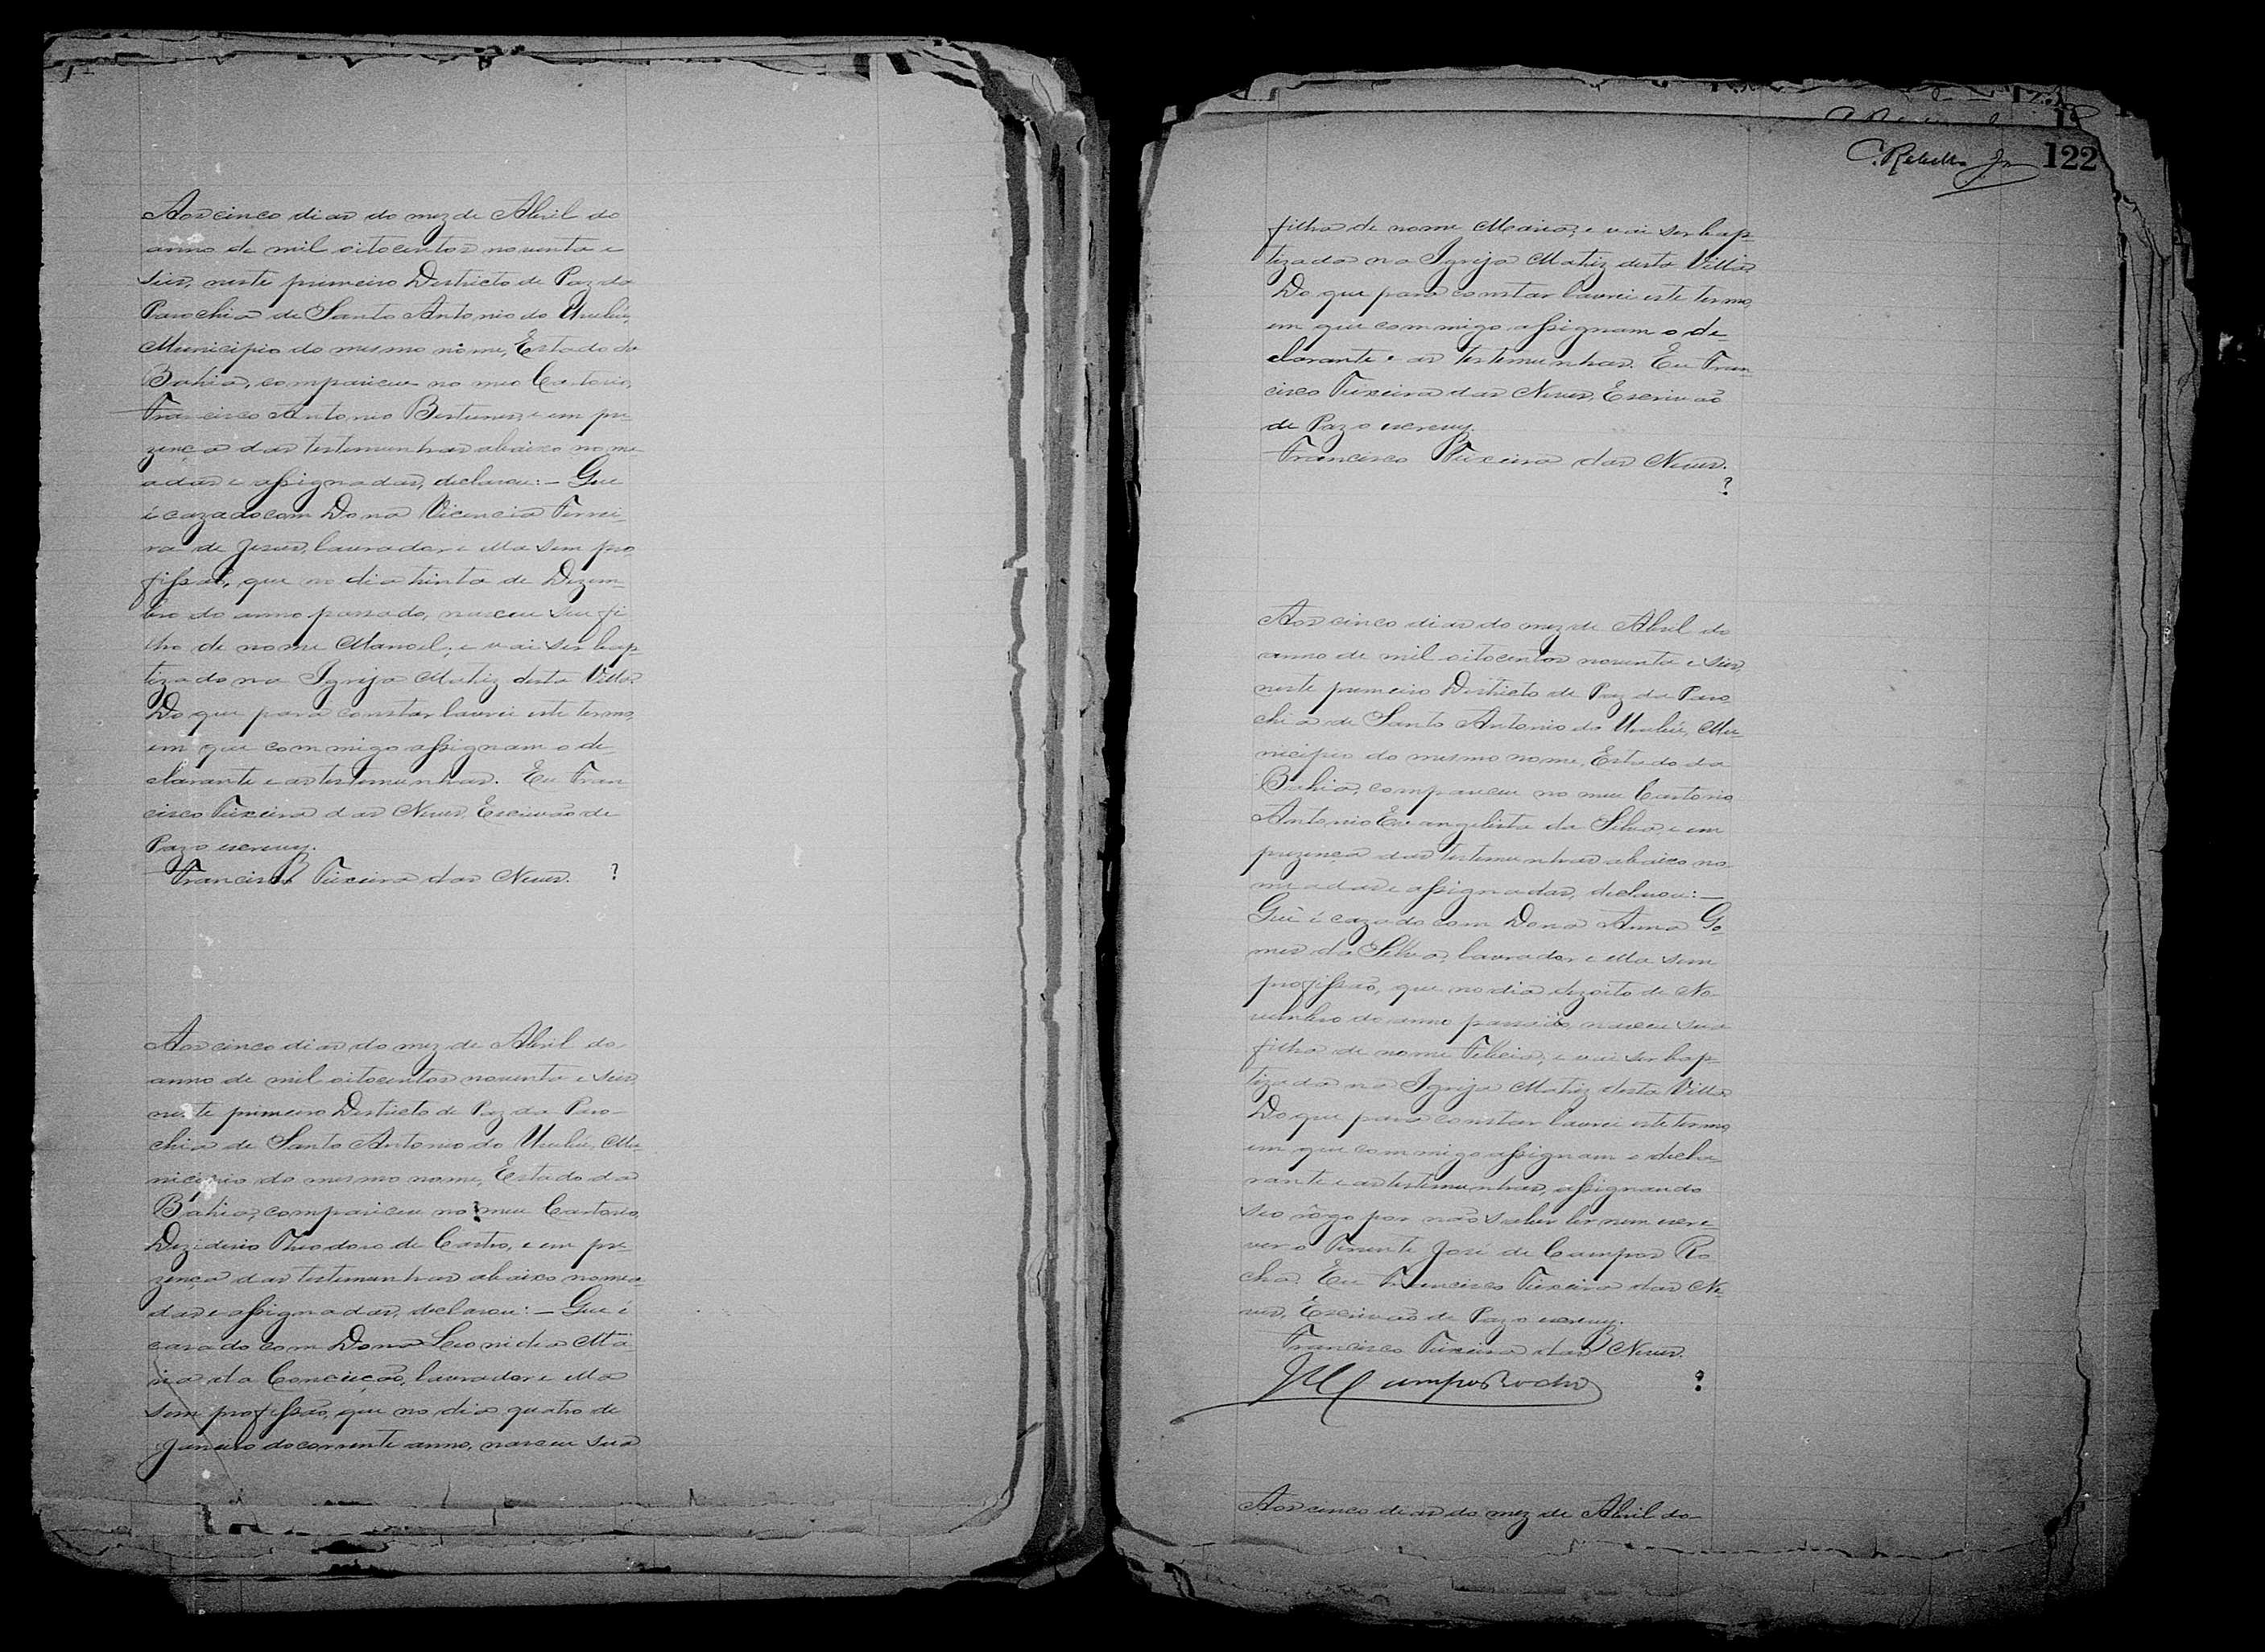 Aos cinco dias do mez de Abril do
anno de mil oitocentos noventa e
seis, neste primeiro Districto de Paz da
Parochia de Santo Antonio do Urubú,
Municipio do mesmo nome, Estado da
Bahia, compareceu no meo Cartorio,
Francisco Antonio e em pre-
zença das testemunhas abaixo nome-
adas e assignadas, declarou: — Que
é cazado com Dona Vicencia Ferrei-
ra de Jesus, lavrador e ella sem pro-
fissaõ, que no dia trinta de Dezem-
bro do anno passado, nasceu seu fi-
lho de nome Manoel, e vai ser bap-
tizado na Igreja Matriz desta Villa.
Do que para constar lavrei este termo,
em que commigo assignam o de-
clarante e as testemunhas. Eu Fran-
cisco Teixeira das Neves, Escrivão de
Paz o escrevy.
Francisco Teixeira das Neves. ?
Aos cinco dias do mez de Abril do
anno de mil oitocentos noventa e seis,
neste primeiro Districto de Paz da Paro-
chia de Santo Antonio do Urubú, Mu-
nicipio do mesmo nome, Estado da
Bahia, compareceu no meu Cartorio,
Deziderio Theodoro de Castro, e em pre-
zença das testemunhas abaixo nomea-
das e assignadas, declarou: — Que é
casado com Dona Leonidia Ma-
ria da Conceição, lavrador e ella
sem profissão, que no dia quatro de
Janeiro do corrente anno, nasceu sua
C. Rebello Jr 122
filha de nome Maria, e vai ser bap-
tizada na Igreja Matriz desta Villa.
Do que para constar lavrei este termo,
em que commigo assignam o de-
clarante e as testemunhas. Eu Fran-
cisco Teixeira das Neves, Escrivaõ
de Paz o escrevy.
Francisco Teixeira das Neves.
?
Aos cinco dias do mez de Abril do
anno de mil oitocentos noventa e seis,
neste primeiro Districto de Paz da Paro-
chia de Santo Antonio do Urubú, Mu-
nicipio do mesmo nome, Estado da
Bahia, compareceu no meu Cartorio
Antonio Evangelista da Silva, e em
prezença das testemunhas abaixo no-
meadas e assignadas, declarou: —
Que é cazado com Dona Anna Go-
mes da Silva, lavrador e ella sem
profissão, que no dia dezoito de No-
vembro do anno passado nasceu sua
filha de nome Felicia, e vai ser bap-
tizada na Igreja Matriz desta Villa
Do que para constar lavrei este termo
em que commigo assignam o decla-
rante e as testemunhas, assignando
seo rôgo por não saber ler nem escre-
ver o Tenente José de Campos Ro-
cha. Eu Francisco Teixeira das Ne-
ves, Escrivão de Paz o escrevy.
Francisco Teixeira das Neves.
Campos Rocha ?
Aos cinco dias do mez de Abril do